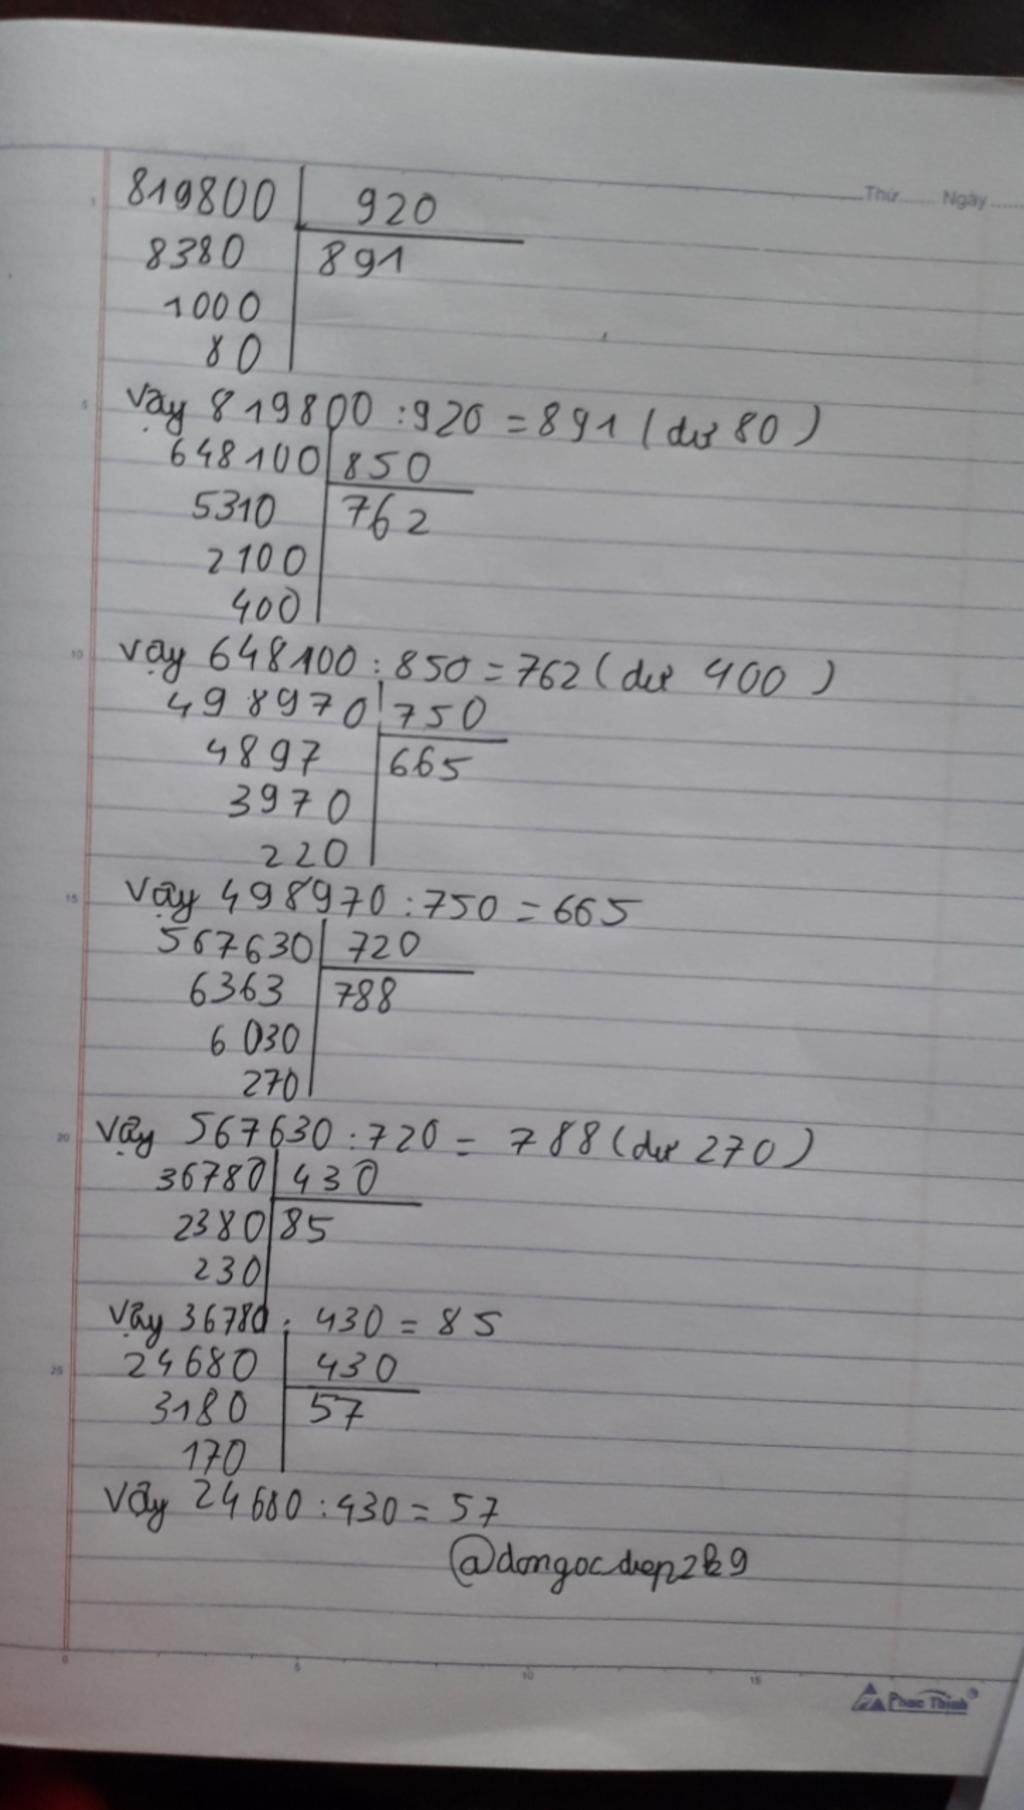 Thứ...... Ngày......
819800 920
8380 891
1000
80
Vậy 819800 : 920 = 891 (dư 80)
648100 850
5310 762
2100
400
Vậy 648100 : 850 = 762 (dư 400)
498970 750
4897 665
3970
220
Vậy 498970 : 750 = 665
567630 720
6363 788
6030
270
Vậy 567630 : 720 = 788 (dư 270)
36780 430
2380 85
230
Vậy 36780 : 430 = 85
24680 430
3180 57
170
Vậy 24680 : 430 = 57
@dongocdiep2k9
0 5 10 15
Phuc Thinh